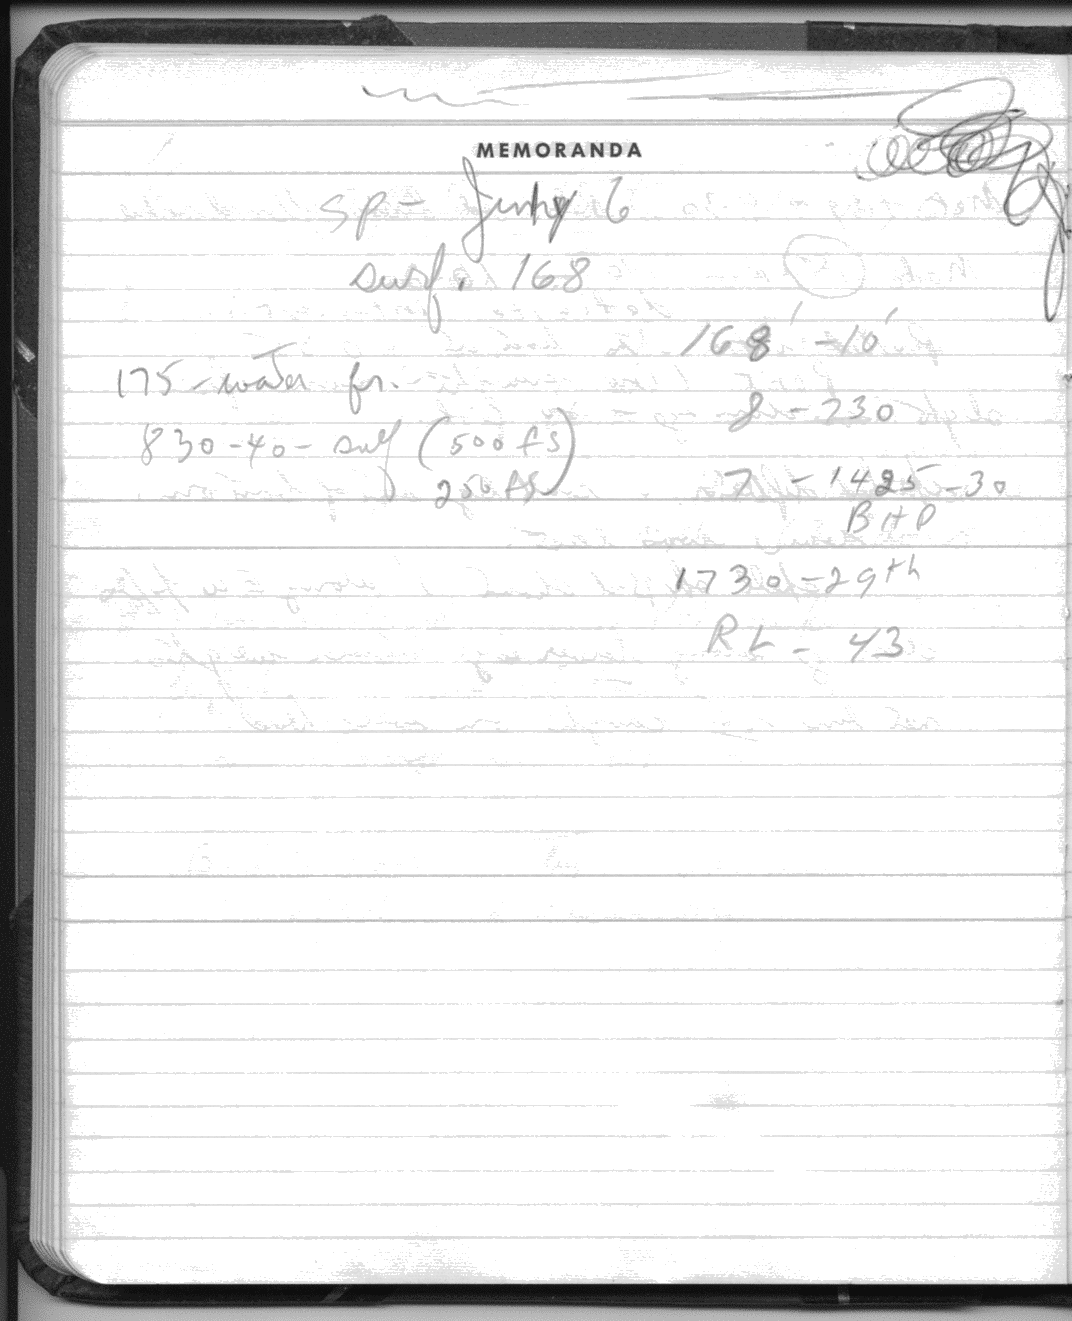 MEMORANDA
SP - 6
surf. 168
168' - 10'
175 - water fr.
8 - 230
830-40 - surf (500 fs)
250 fs
7 - 1425 - 30
BHP
1730 - 29th
RL - 43